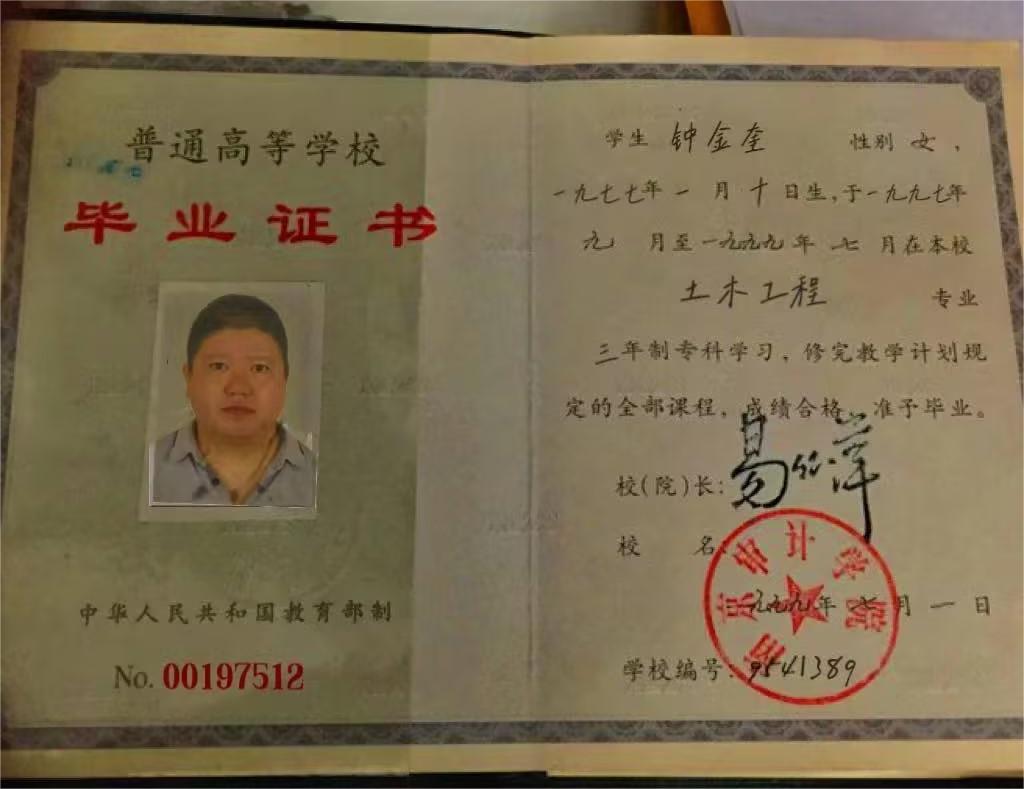 普通高等学校
毕业证书
中华人民共和国教育部制
No. 00197512
学生 钟金奎 性别 女，
一九七七年一月十日生，于一九九七年
九 月至一九九九年 七 月在本校
土木工程 专业
三年制专科学习，修完教学计划规
定的全部课程，成绩合格，准予毕业。
校(院)长：易仁萍
校 名：
南京审计学院
一九九九年 七 月 一 日
学校编号：9541389